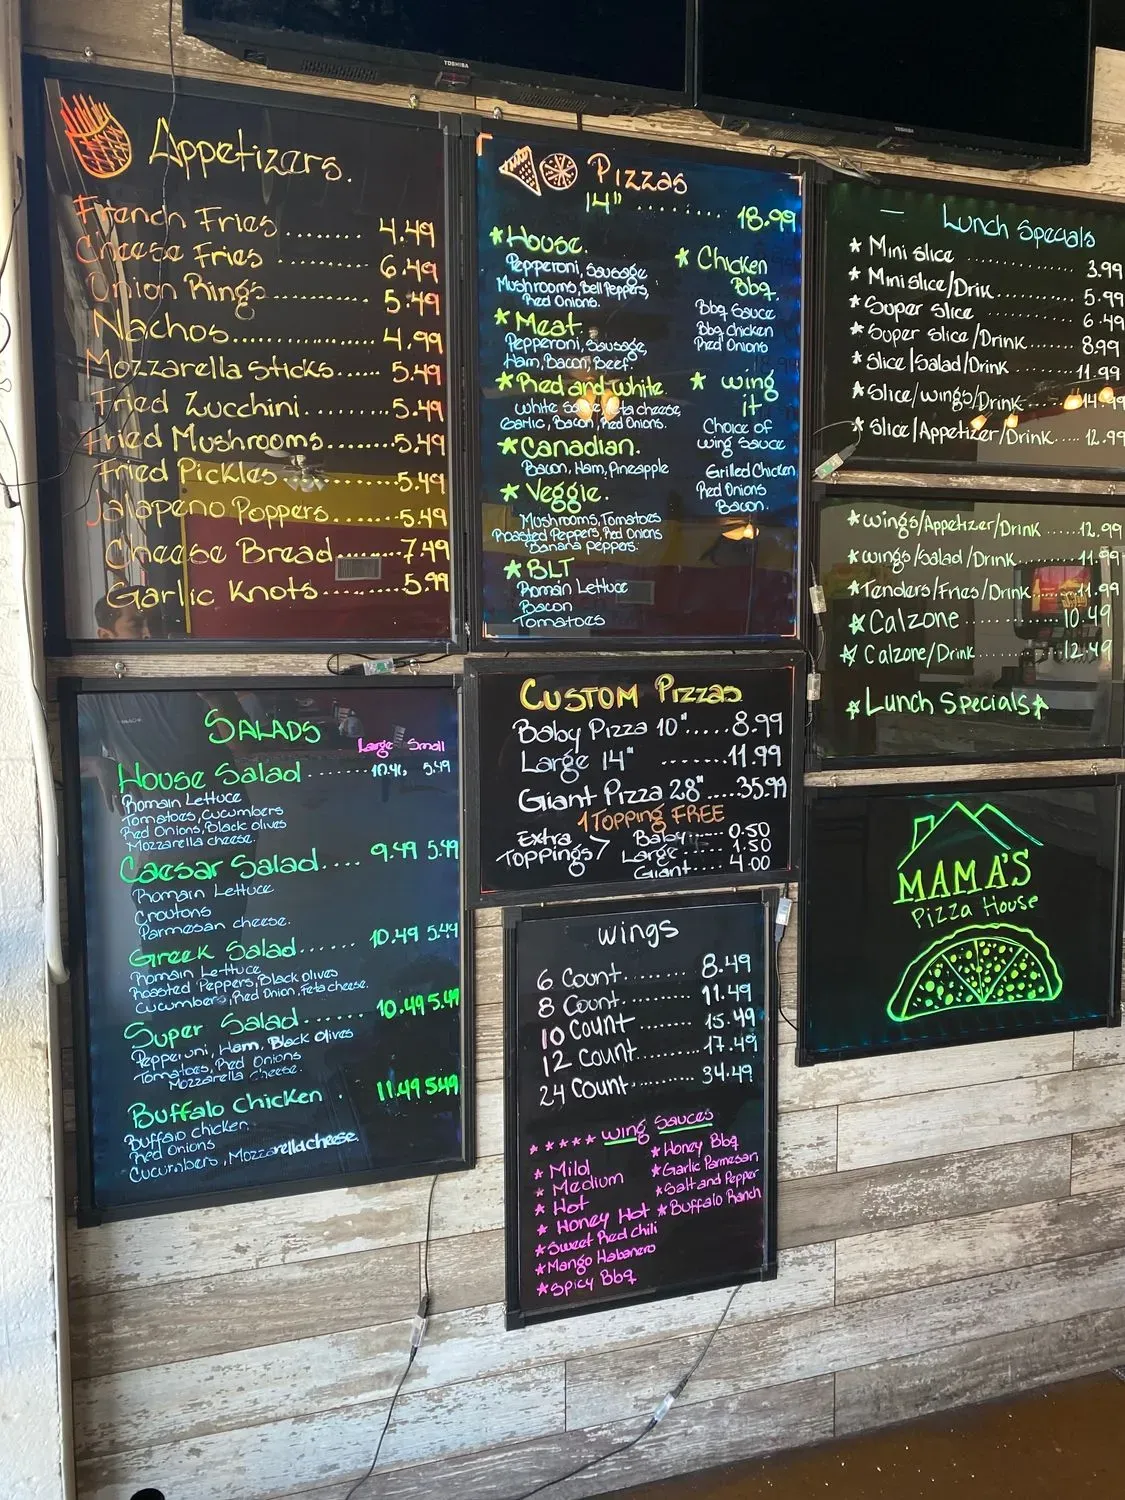 TOSHIBA
TOSHIBA
Appetizers.
French Fries ........ 4.49
Cheese Fries ......... 6.49
Onion Rings .......... 5.49
Nachos............... 4.99
Mozzarella Sticks...... 5.49
Fried Zucchini......... 5.49
Fried Mushrooms....... 5.49
Fried Pickles............ 5.49
Jalapeno Poppers....... 5.49
Cheese Bread......... 7.49
Garlic Knots........... 5.99
Pizzas
14" ......... 18.99
*House.
Pepperoni, Sausage
Mushrooms, Bell Peppers,
Red Onions.
*Meat.
Pepperoni, Sausage,
Ham, Bacon, Beef.
*Red and White
White Sauce, Feta cheese,
Garlic, Bacon, Red Onions.
*Canadian.
Bacon, Ham, Pineapple
*Veggie.
Mushrooms, Tomatoes
Roasted Peppers, Red Onions
Banana Peppers.
*BLT
Romain Lettuce
Bacon
Tomatoes
*Chicken
Bbq.
Bbq Sauce
Bbq Chicken
Red Onions
* Wing
it
Choice of
Wing Sauce
Grilled Chicken
Red Onions
Bacon.
Lunch Specials
* Mini Slice ............ 3.99
* Mini Slice/Drink ......... 5.99
* Super Slice ............ 6.49
* Super Slice/Drink........ 8.99
* Slice/Salad/Drink ........ 11.99
* Slice/Wings/Drink ....... 14.99
* Slice/Appetizer/Drink..... 12.99
*Wings/Appetizer/Drink ....12.99
*Wings/Salad/Drink ........11.99
*Tenders/Fries/Drink.......11.99
*Calzone ............10.49
*Calzone/Drink...........12.49
*Lunch Specials*
SALADS
Large Small
House Salad ........ 5.49
Romain Lettuce
Tomatoes, Cucumbers
Red Onions, Black Olives
Mozzarella cheese.
Caesar Salad.... 9.49 5.49
Romain Lettuce
Croutons
Parmesan cheese.
Greek Salad...... 10.49 5.49
Romain Lettuce
Roasted Peppers, Black Olives
Cucumbers, Red Onion, Feta cheese.
Super Salad ...... 10.49 5.49
Pepperoni, Ham, Black Olives
Tomatoes, Red Onions
Mozzarella Cheese.
Buffalo Chicken . 11.49 5.49
Buffalo chicken
Red Onions
Cucumbers, Mozzarella cheese.
CUSTOM Pizzas
Baby Pizza 10"..... 8.99
Large 14" .......11.99
Giant Pizza 28".....35.99
1 Topping FREE
Extra Toppings >
Baby...... 0.50
Large ...... 1.50
Giant...... 4.00
Wings
6 Count......... 8.49
8 Count......... 11.49
10 Count ........ 15.49
12 Count......... 17.49
24 Count.......... 34.49
***** Wing Sauces
* Mild
* Medium
* Hot
* Honey Hot
* Sweet Red Chili
*Mango Habanero
*Spicy Bbq
* Honey Bbq
*Garlic Parmesan
*Salt and Pepper
*Buffalo Ranch
MAMA'S
Pizza House